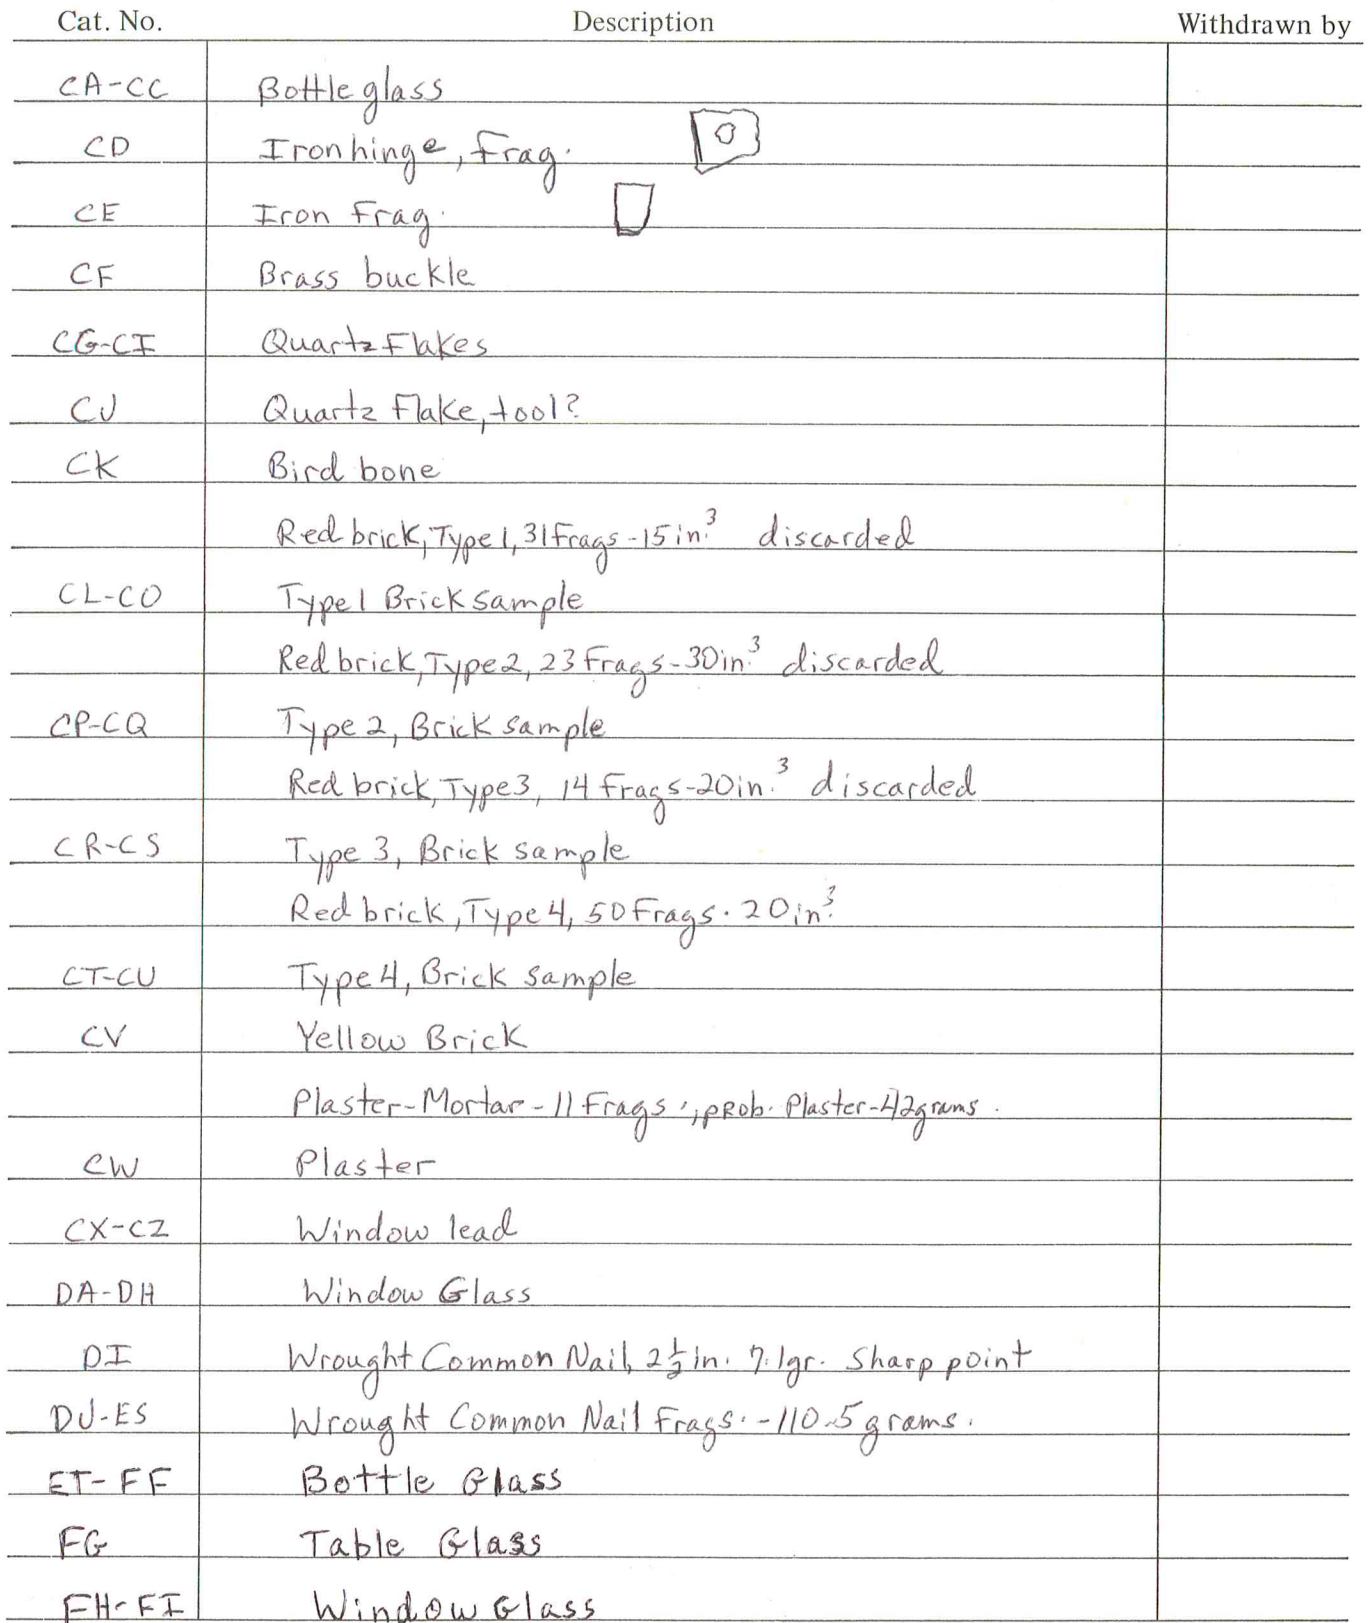 Cat. No. Description Withdrawn by
CA-CC Bottle glass
CD Iron hinge, Frag.
CE Iron Frag.
CF Brass buckle
CG-CI Quartz Flakes
CJ Quartz Flake, tool?
CK Bird bone
Red brick, Type 1, 31 Frags - 15 in.³ discarded
CL-CO Type 1 Brick sample
Red brick, Type 2, 23 Frags - 30 in.³ discarded
CP-CQ Type 2, Brick sample
Red brick, Type 3, 14 Frags - 20 in.³ discarded
CR-CS Type 3, Brick sample
Red brick, Type 4, 50 Frags. 20 in.³
CT-CU Type 4, Brick sample
CV Yellow Brick
Plaster-Mortar - 11 Frags., prob. Plaster - 42 grams.
CW Plaster
CX-CZ Window lead
DA-DH Window Glass
DI Wrought Common Nail, 2½ in. 7.1 gr. Sharp point
DJ-ES Wrought Common Nail Frags. - 110.5 grams.
ET-FF Bottle Glass
FG Table Glass
FH-FI Window Glass